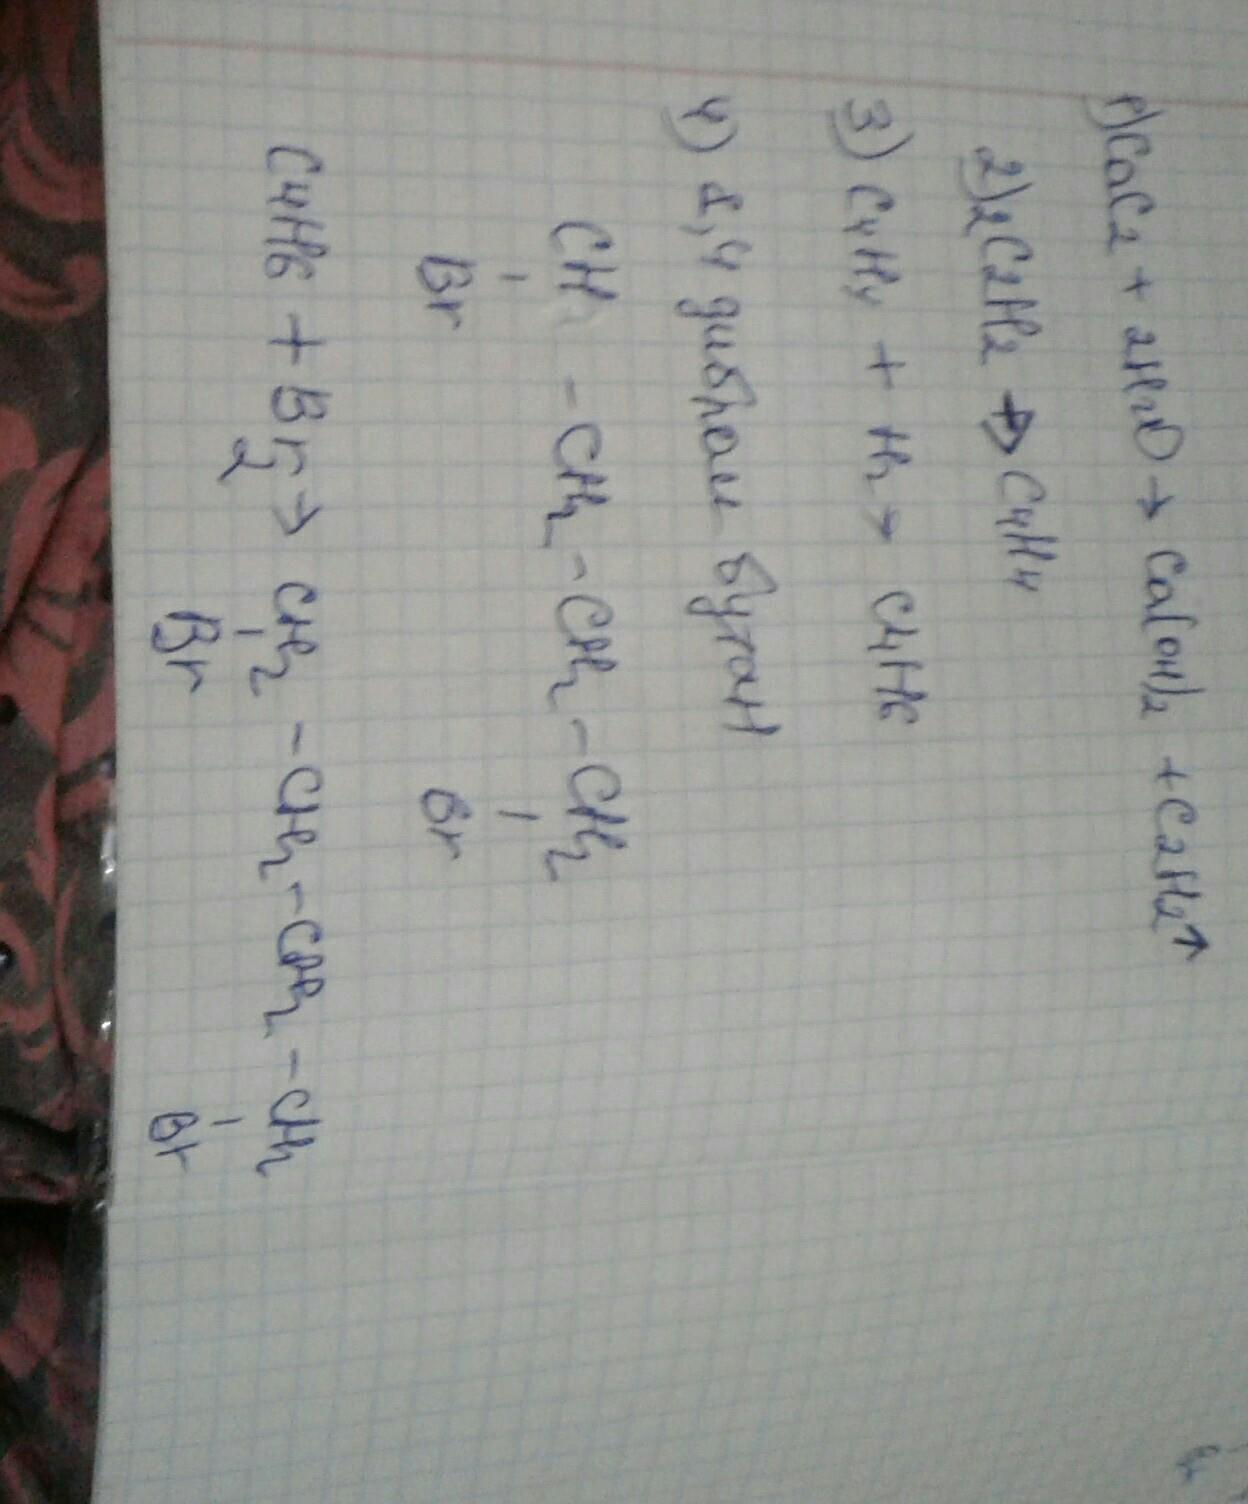 1) CaC2 + 2H2O → Ca(OH)2 + C2H2↑
2) 2C2H2 → C4H4
3) C4H4 + H2 → C4H6
4) 1,4 дибром бутан
CH - CH2 - CH2 - CH2
Br Br
C4H6 + Br2 → CH2 - CH2 - CH2 - CH2
Br Br